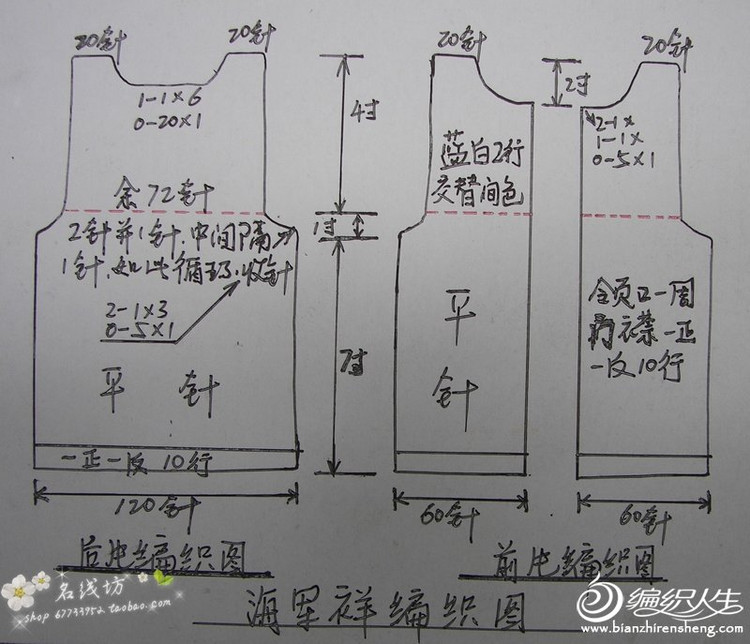 20针
20针
1-1×6
0-20×1
余72针
2针并1针,中间隔
1针,如此循环,收针
2-1×3
0-5×1
平 针
一正一反 10行
120针
后片编织图
4寸
1寸
7寸
20针
蓝白2行
交替间色
平
针
60针
2寸
20针
2-1×
1-1×
0-5×1
领口一周
两衣襟一正
一反10行
60针
前片编织图
编织图
名线坊
shop 67733952.taobao.com
编织人生
www.bianzhirensheng.com